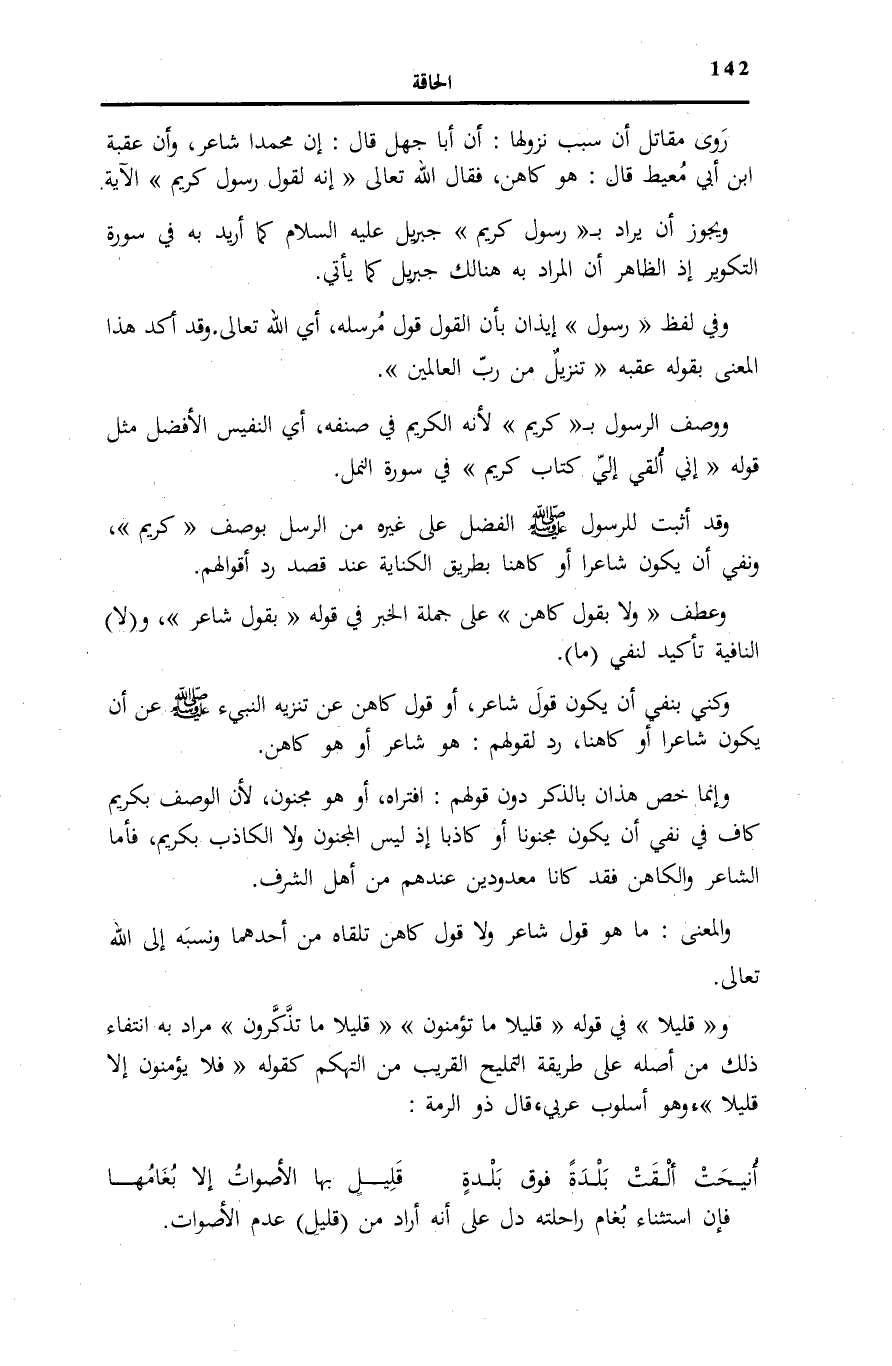 142
الحاقة
رَوى مقاتل أن سبب نزولها : أن أبا جهل قال : إن محمدا شاعر، وأن عقبة
ابن أبي مُعيط قال : هو كاهن، فقال الله تعالى « إنه لقول رسول كريم » الآية.
ويجوز أن يراد بـ« رسول كريم » جبريل عليه السلام كما أريد به في سورة
التكوير إذ الظاهر أن المراد به هنالك جبريل كما يأتي.
وفي لفظ « رسول » إيذان بأن القول قول مُرسله، أي الله تعالى.وقد أكد هذا
المعنى بقوله عقبه « تنزيلٌ من ربّ العالمين ».
ووصف الرسول بـ« كريم » لأنه الكريم في صنفه، أي النفيس الأفضل مثل
قوله « إني أُلقي إليّ كتاب كريم » في سورة النمل.
وقد أثبت للرسول ﷺ الفضل على غيره من الرسل بوصف « كريم »،
ونفي أن يكون شاعرا أو كاهنا بطريق الكناية عند قصد رد أقوالهم.
وعطف « ولا بقول كاهن » على جملة الخبر في قوله « بقول شاعر »، و(لا)
النافية تأكيد لنفي (ما).
وكني بنفي أن يكون قولَ شاعر، أو قول كاهن عن تنزيه النبيء ﷺ عن أن
يكون شاعرا أو كاهنا، رد لقولهم : هو شاعر أو هو كاهن.
وإنما خص هذان بالذكر دون قولهم : افتراه، أو هو مجنون، لأن الوصف بكريم
كاف في نفي أن يكون مجنونا أو كاذبا إذ ليس المجنون ولا الكاذب بكريم، فأما
الشاعر والكاهن فقد كانا معدودين عندهم من أهل الشرف.
والمعنى : ما هو قول شاعر ولا قول كاهن تلقاه من أحدهما ونسبَه إلى الله
تعالى.
و« قليلا » في قوله « قليلا ما تؤمنون » « قليلا ما تذَّكَّرون » مراد به انتفاء
ذلك من أصله على طريقة التمليح القريب من التهكم كقوله « فلا يؤمنون إلا
قليلا »، وهو أسلوب عربي، قال ذو الرمة :
أُنيـحَتْ ألْـقَتْ بَلْـدَةً فوق بَلْـدةٍ قَلِيــلٍ بها الأصواتُ إلا بُغَامُهــا
فإن استثناء بُغام راحلته دل على أنه أراد من (قليلِ) عدم الأصوات.